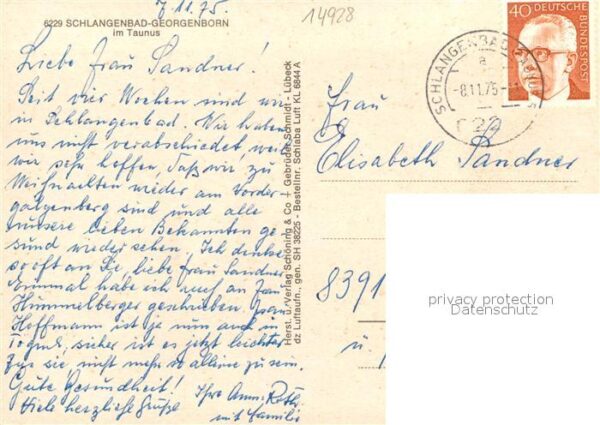 7.11.75.
14928
6229 SCHLANGENBAD-GEORGENBORN
im Taunus
Liebe Frau Sandner!
Seit vier Wochen sind wir
in Schlangenbad. Wir haben
uns nicht verabschiedet weil
wir sehr hoffen, daß wir zu
Weihnachten wieder am Vorder-
galgenberg sind und alle
unsere lieben Bekannten ge-
sund wieder sehen. Ich denke
so oft an Sie, liebe Frau Sandner
Einmal habe ich auf an Frau
Himmelberger geschrieben. Frau
Hoffmann ist ja nun auch in
sicher ist es jetzt leichter
für sie, nicht mehr so alleine zu sein.
Gute Gesundheit!
Viele herzliche Grüße
Ihre Ann. Roth
mit Familie
Herst. u. Verlag Schöning & Co + Gebrüder Schmidt - Lübeck
dz Luftaufn., gen. SH 38225 - Bestellnr. Schlaba Luft KL 6844 A
SCHLANGENBAD
a
-8.11.75-
40 DEUTSCHE
BUNDESPOST
Frau
Elisabeth Sandner
8391
privacy protection
Datenschutz